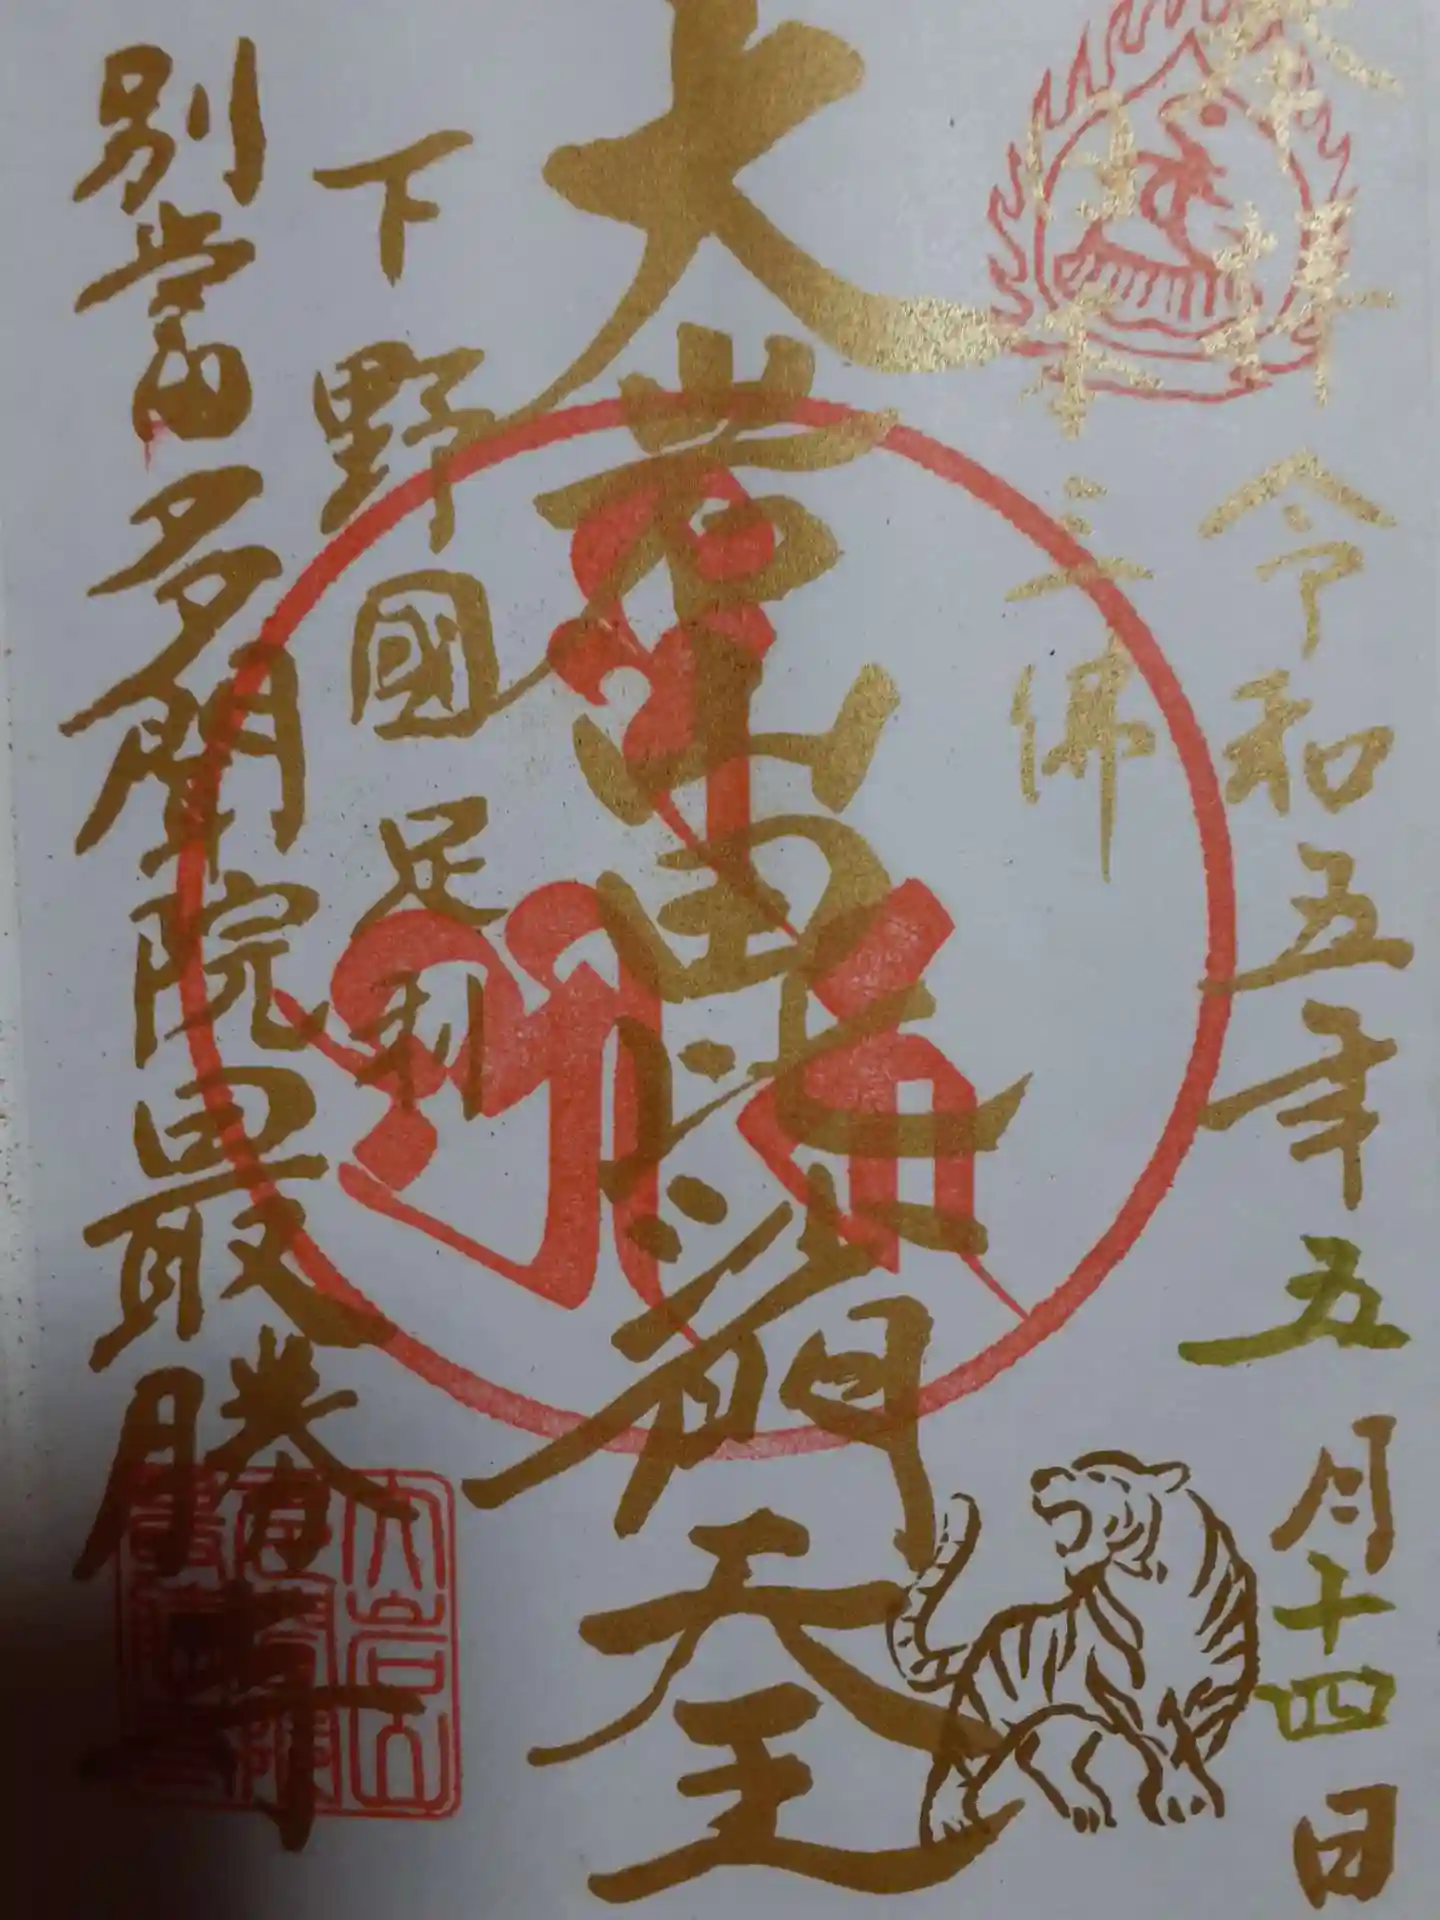 奉拝
令和五年五月十四日
日本三佛
大岩山毘沙門天王
下野國足利
別當多聞院最勝寺